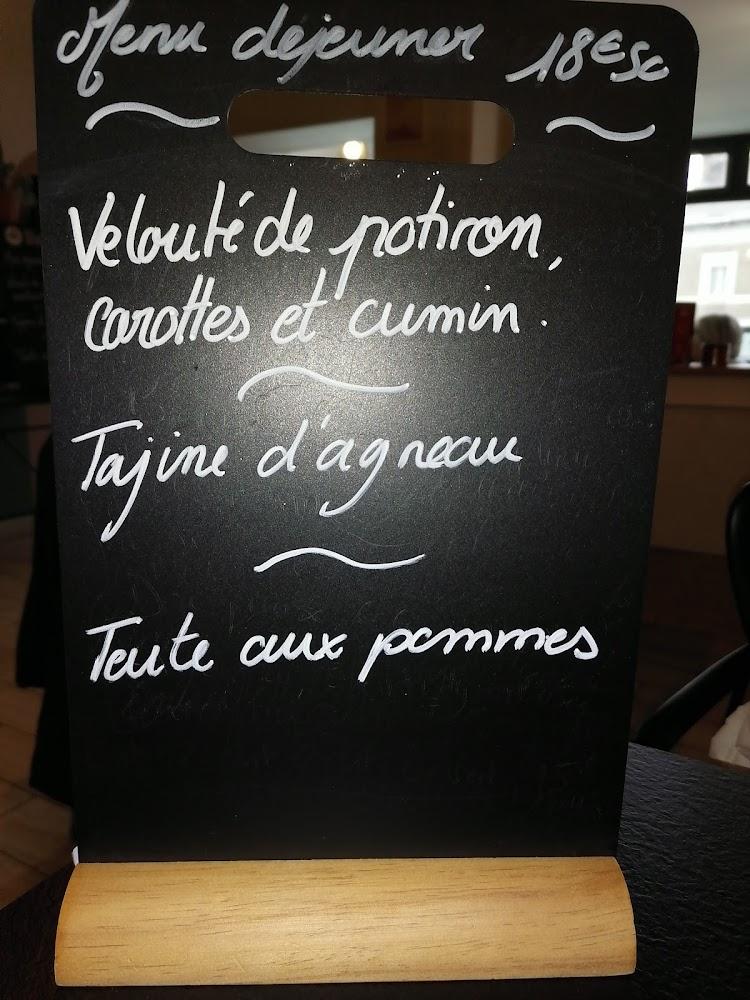 Menu déjeuner 18€50
Velouté de potiron,
carottes et cumin.
Tajine d'agneau
Tarte aux pommes